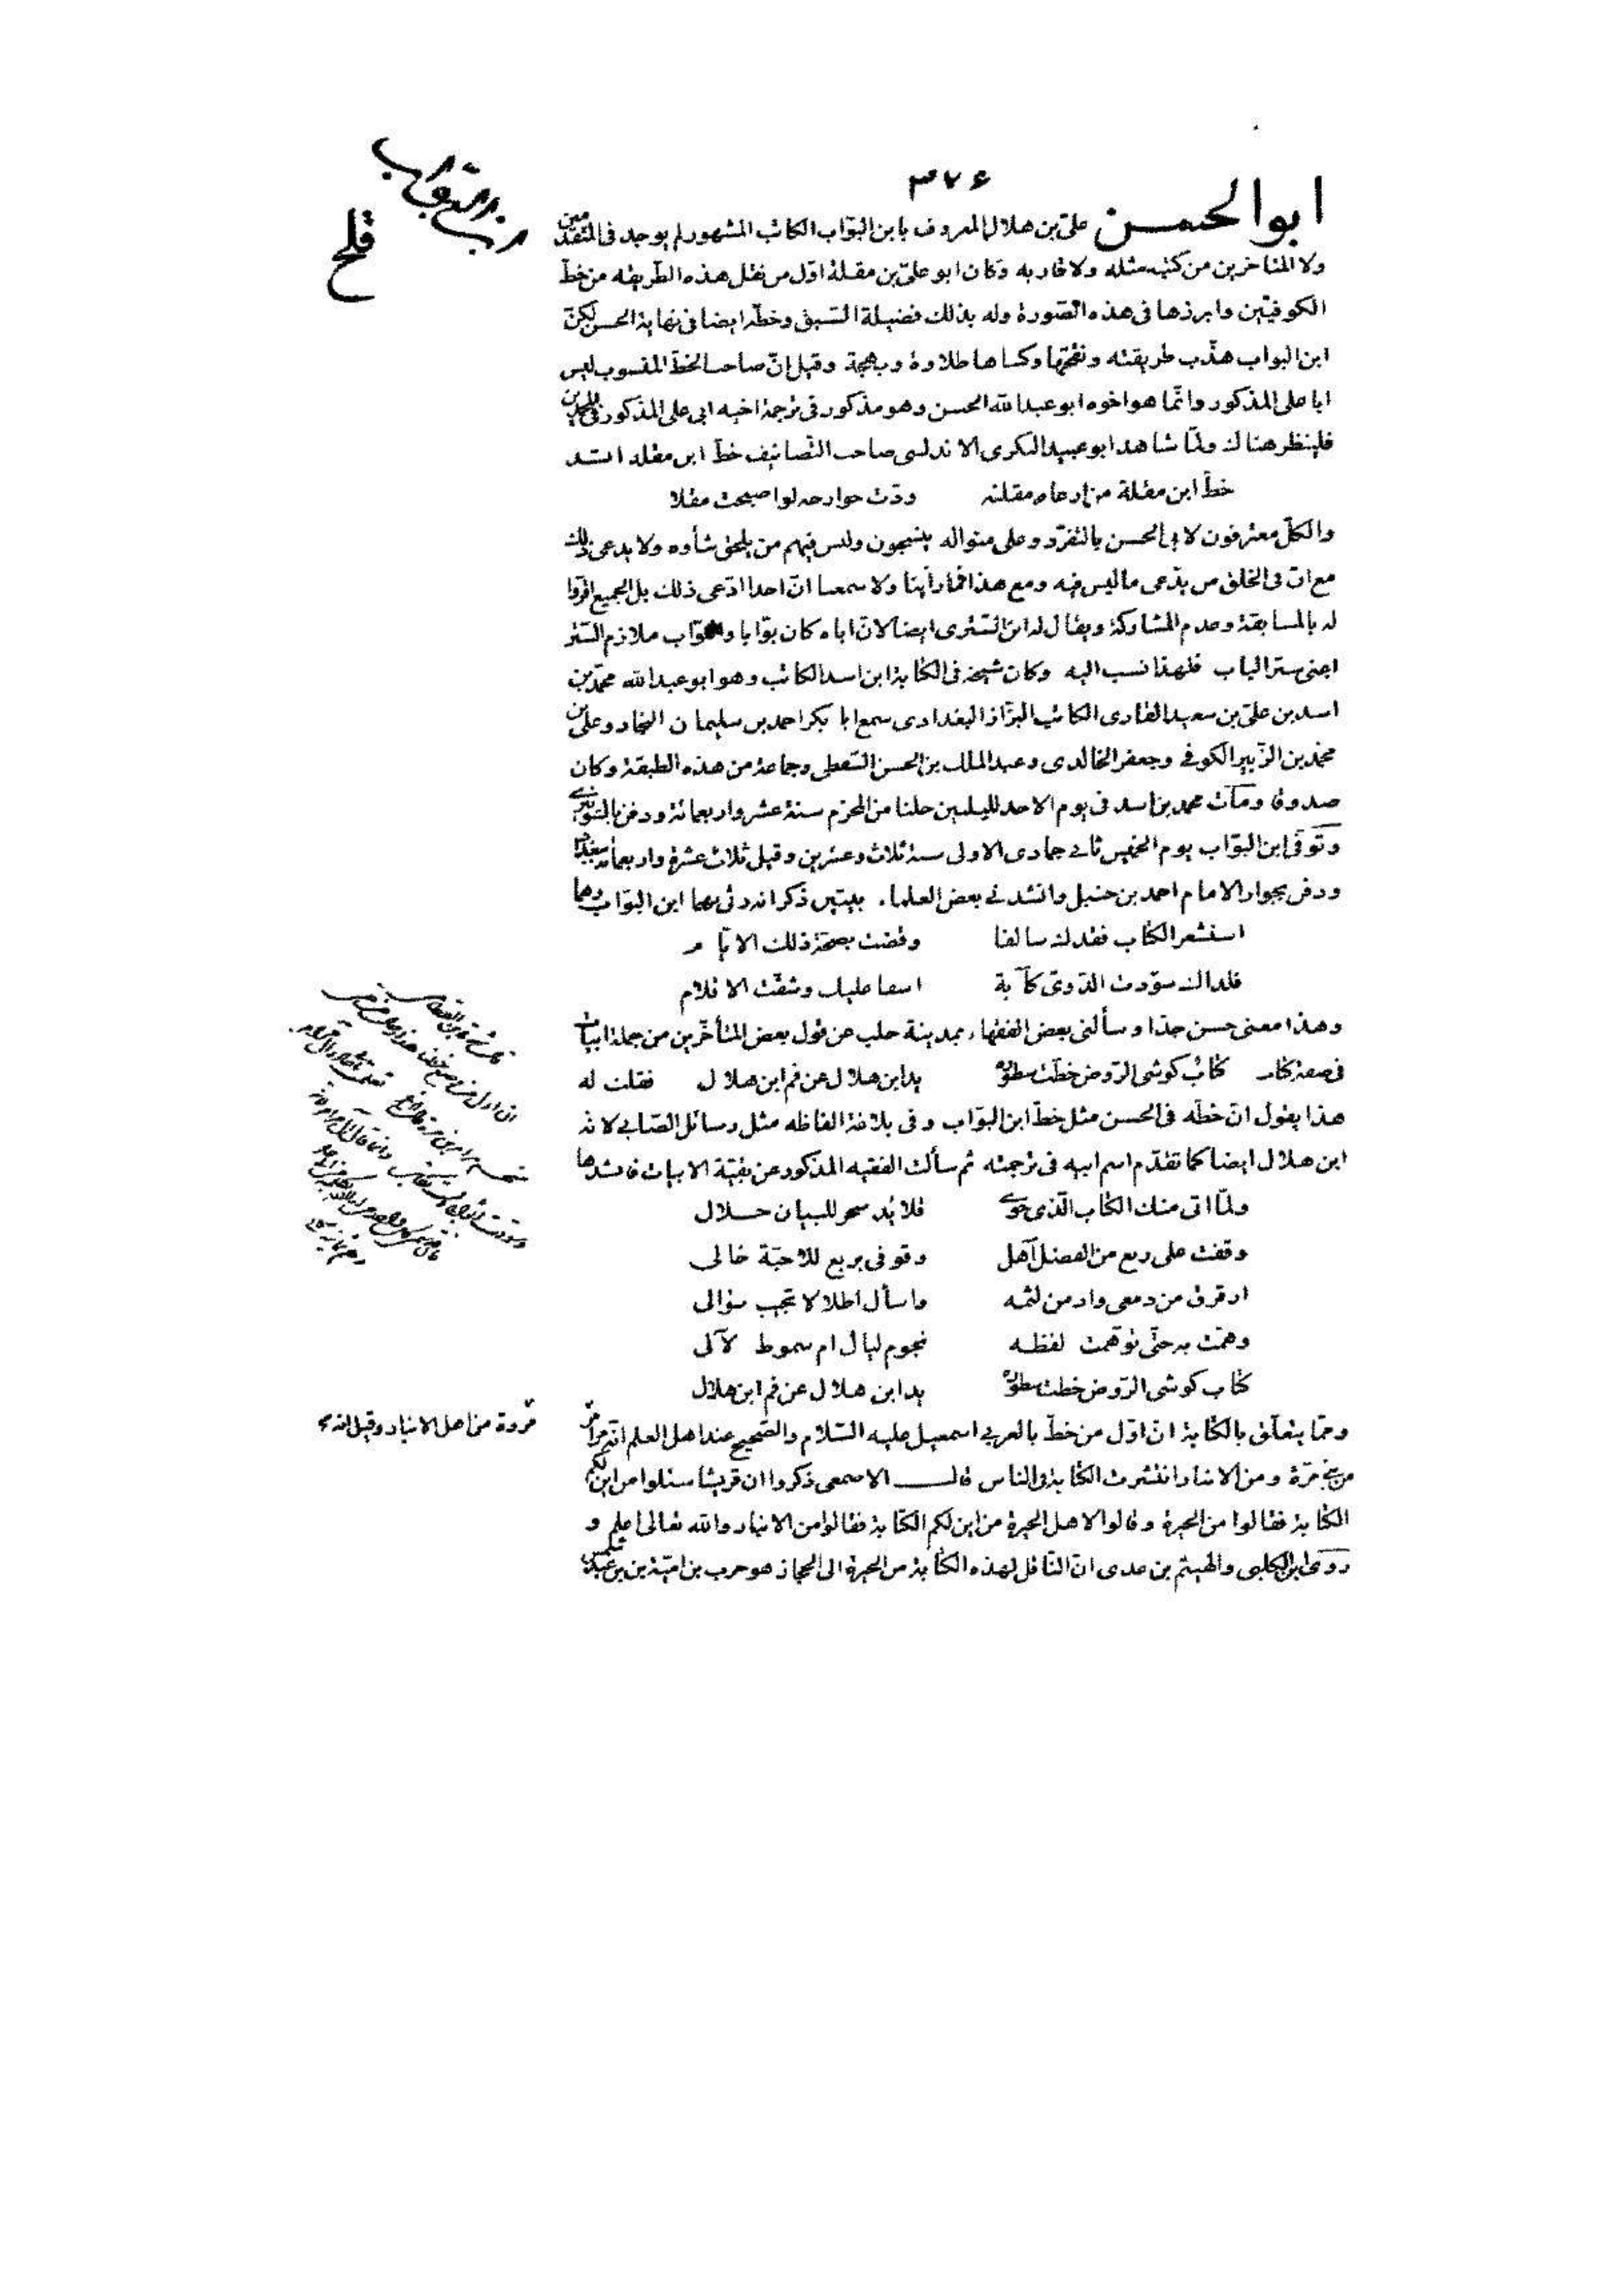 ٣٧۶
ابوالحسن علىّ بن هلال المعروف بابن البوّاب الكاتب المشهور لم يوجد فى المتقدّمين
ولا المتاخرين من كتب مثله ولا قاربه وكان ابو علىّ بن مقلة اوّل من نقل هذه الطريقه من خطّ
الكوفيّين وابرزها فى هذه الصّورة وله بذلك فضيلة السّبق وخطّه ايضا فى نهاية الحسن لكنّ
ابن البواب هذّب طريقته ونقّحها وكساها طلاوة وبهجة وقيل انّ صاحب الخطّ المنسوب ليس
ابا على المذكور وانّما هو اخوه ابو عبدالله الحسن وهو مذكور فى ترجمة اخيه ابى على المذكور فى المحمدين
فلينظر هناك ولمّا شاهد ابو عبيد البكرى الاندلسى صاحب التّصانيف خطّ ابن مقله انشد
خطّ ابن مقلة من ارعاه مقلته ودّت جوارحه لو اصبحت مقلا
والكلّ معترفون لابى الحسن بالتفرّد وعلى منواله ينسجون وليس فيهم من يلحق شأوه ولا يدعى ذلك
مع انّ فى الخلق من يدّعى ما ليس فيه ومع هذا فما رأينا ولا سمعنا انّ احدا ادّعى ذلك بل الجميع اقرّوا
له بالمسابقة وعدم المشاركة ويقال له ابن السّترى ايضا لانّ اباه كان بوّابا والبوّاب ملازم السّتر
اعنى ستر الباب فلهذا نسب اليه وكان شيخه فى الكتابة ابن اسد الكاتب وهو ابو عبدالله محمّد بن
اسد بن علىّ بن سعيد القارى الكاتب البزّاز البغدادى سمع ابا بكر احمد بن سليمان النجاد وعلىّ بن
محمّد بن الزّبير الكوفى وجعفر الخالدى وعبد الملك بن الحسن السّقطى وجماعة من هذه الطبقة وكان
صدوقا ومات محمد بن اسد فى يوم الاحد لليلتين خلتا من المحرّم سنة عشر واربعمائة ودفن بالشّونيزى
وتوفّى ابن البوّاب يوم الخميس ثانى جمادى الاولى سنة ثلاث وعشرين وقيل ثلاث عشرة واربعمائة ببغداد
ودفن بجوار الامام احمد بن حنبل وانشد فى بعض العلماء بيتين ذكر انه رثى بهما ابن البوّاب وهما
استشعر الكتاب فقدك سالفا وقضت بصحّة ذلك الايّام
فلذاك سوّدت الدّوىّ كآبة اسفا عليك وشقّت الاقلام
وهذا معنى حسن جدّا وسألنى بعض الفقهاء بمدينة حلب عن قول بعض المتأخّرين من جملة ابيات
فى صفة كتاب كتاب كوشى الرّوض خطّت سطوره يد ابن هلال عن فم ابن هلال فقلت له
هذا يقول انّ خطّه فى الحسن مثل خطّ ابن البوّاب وفى بلاغة الفاظه مثل رسائل الصّابى لانه
ابن هلال ايضا كما تقدّم اسم ابيه فى ترجمته ثم سألت الفقيه المذكور عن بقيّة الابيات فانشدها
ولمّا اتى منك الكتاب الّذى حوى قلائد سحر للبيان حلال
وقفت على ربع من الفضل آهل وقوفى بربع للاحبّة خالى
ارقرق من دمعى وادمن لثمه واسأل اطلالا تجيب سؤالى
وهمّت به حتّى توهّمت لفظه نجوم ليال ام سموط لآلى
كتاب كوشى الرّوض خطت سطوره يد ابن هلال عن فم ابن هلال
وممّا يتعلّق بالكتابة انّ اوّل من خطّ بالعربى اسمعيل عليه السّلام والصّحيح عند اهل العلم انّه مرامر
مروة من اهل الانبار وقيل انه
من بنى مرّة ومن الانبار انتشرت الكتابة فى الناس قال الاصمعى ذكروا ان قريشا سئلوا من اين لكم
الكتابة فقالوا من الحيرة وقالوا لاهل الحيرة من اين لكم الكتابة فقالوا من الانبار والله تعالى اعلم و
روى ابن الكلبى والهيثم بن عدى انّ النّاقل لهذه الكتابة من الحيرة الى الحجاز هو حرب بن اميّة بن عبد شمس